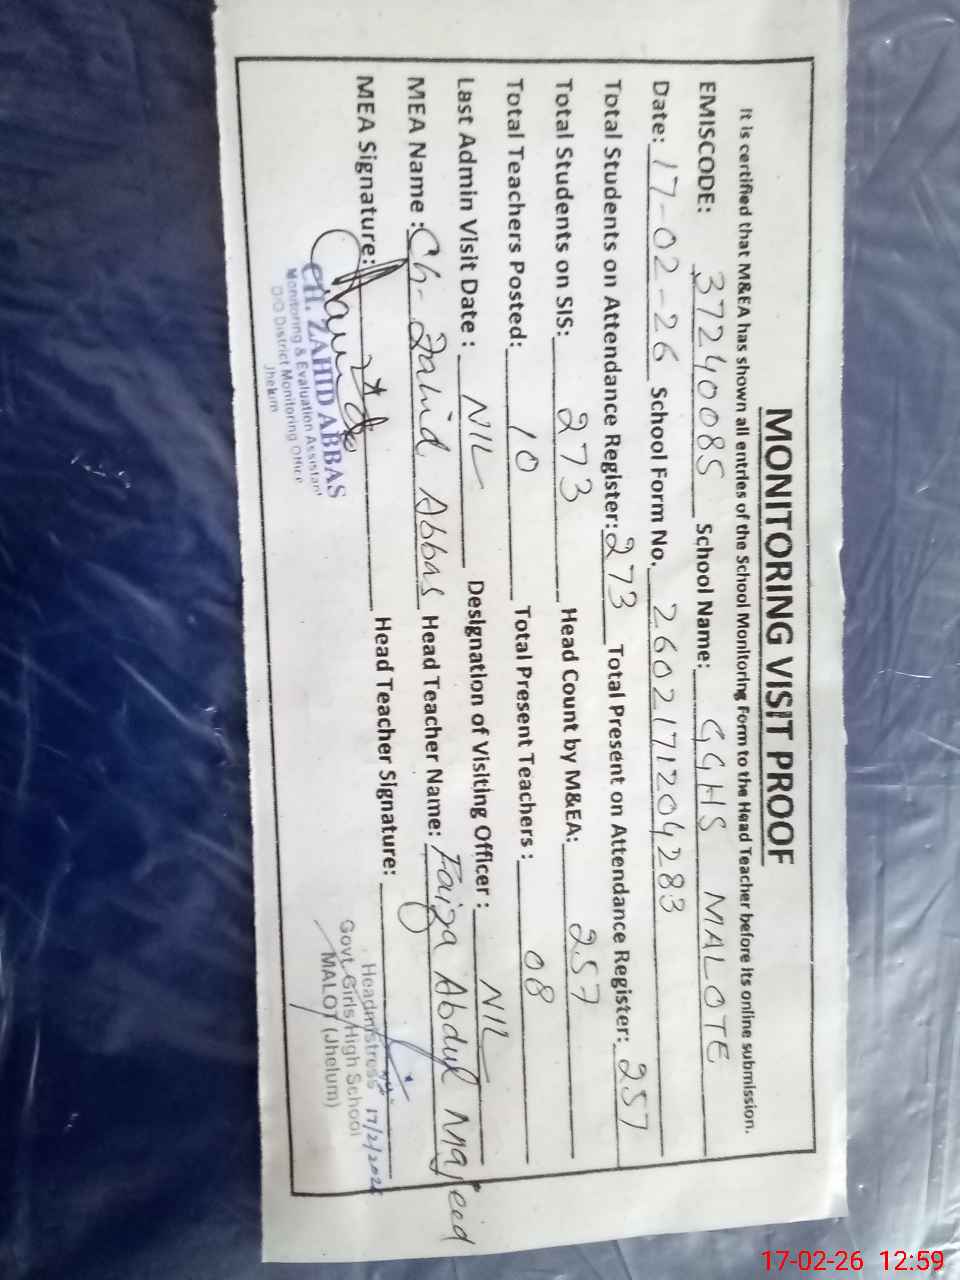 MONITORING VISIT PROOF
It is certified that M&EA has shown all entries of the School Monitoring Form to the Head Teacher before its online submission.
EMISCODE: 37240085 School Name: GGHS MALOTE
Date: 17-02-26 School Form No. 2602171204283
Total Students on Attendance Register: 273 Total Present on Attendance Register: 257
Total Students on SIS: 273 Head Count by M&EA: 257
Total Teachers Posted: 10 Total Present Teachers : 08
Last Admin Visit Date : NIL Designation of Visiting Officer : NIL
MEA Name : Ch. Zahid Abbas Head Teacher Name: Faiza Abdul Majeed
MEA Signature: Head Teacher Signature:
CH. ZAHID ABBAS
Monitoring & Evaluation Assistant
O/O District Monitoring Office
Jhelum
Headmistress 17/2/2026
Govt. Girls High School
MALOT (Jhelum)
17-02-26 12:59